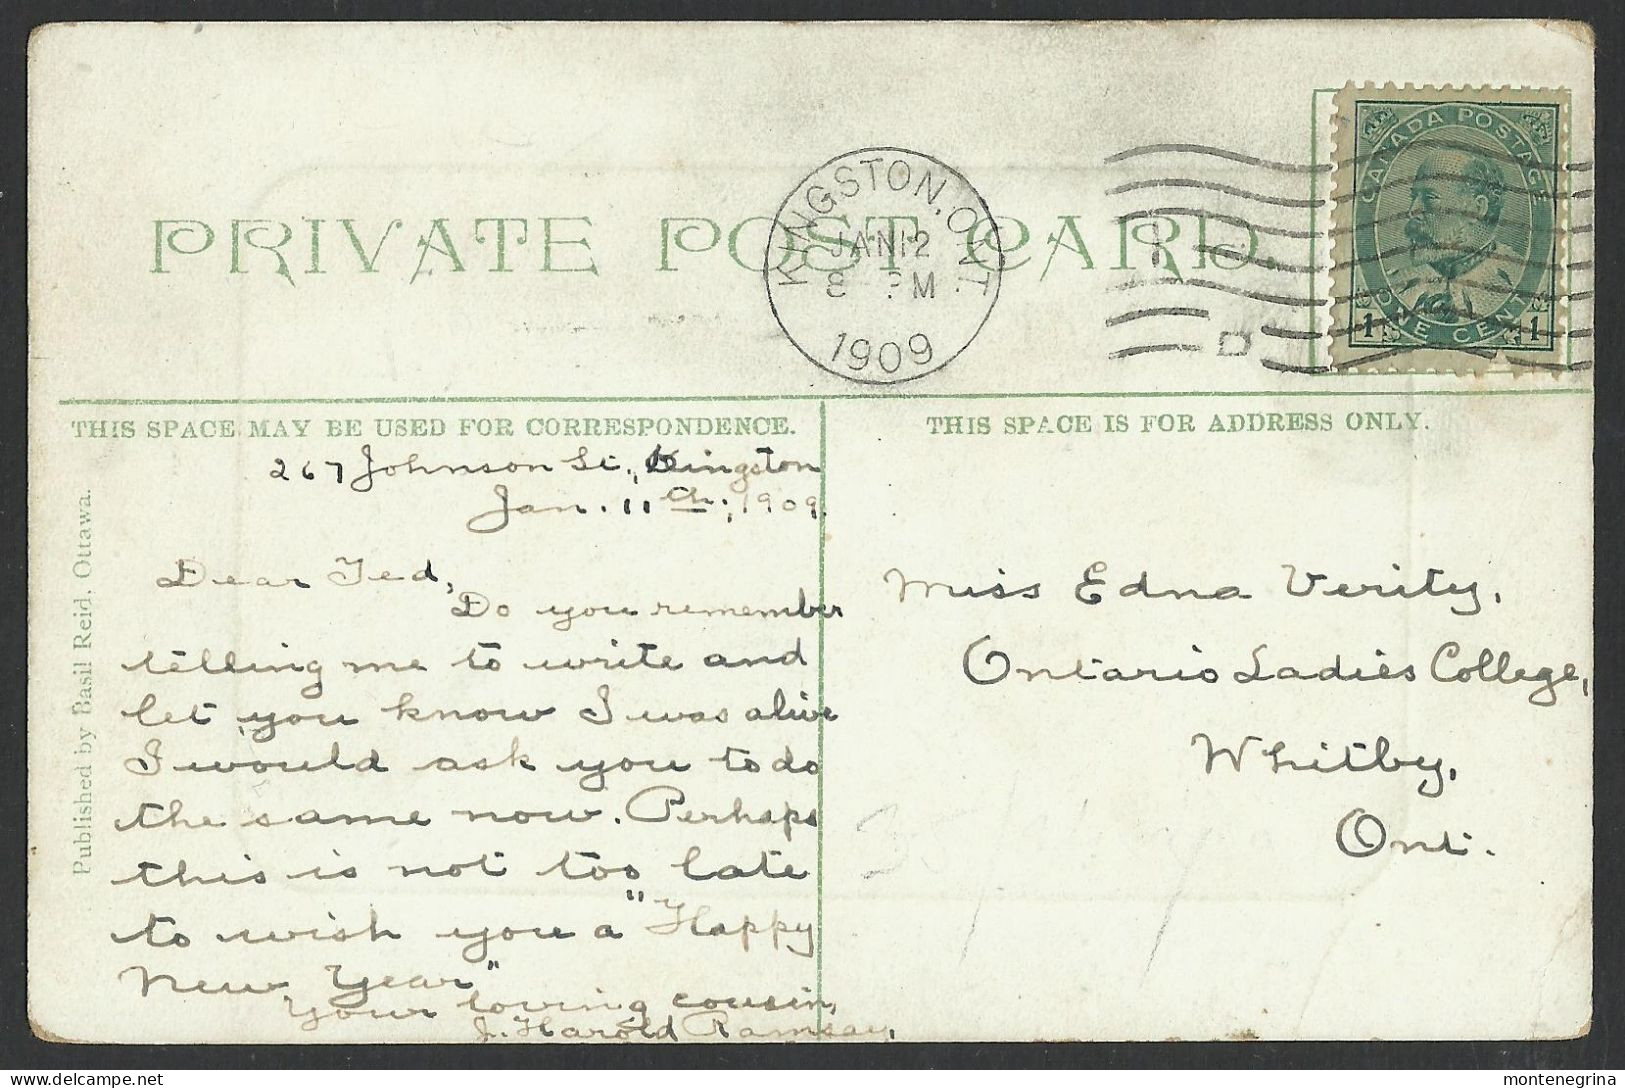 PRIVATE POST CARD.
KINGSTON, ONT.
JAN 12
8 PM
1909
CANADA POSTAGE
1 ONE CENT 1
THIS SPACE MAY BE USED FOR CORRESPONDENCE.
THIS SPACE IS FOR ADDRESS ONLY.
Published by Basil Reid, Ottawa.
267 Johnson St., Kingston
Jan. 11th, 1909.
Dear Ted,
Do you remember
telling me to write and
let you know I was alive
I would ask you to do
the same now. Perhaps
this is not too late
to wish you a "Happy
New Year"
Your loving cousin,
J. Harold Ramsay,
Miss Edna Verity,
Ontario Ladies College,
Whitby,
Ont.
montenegrina